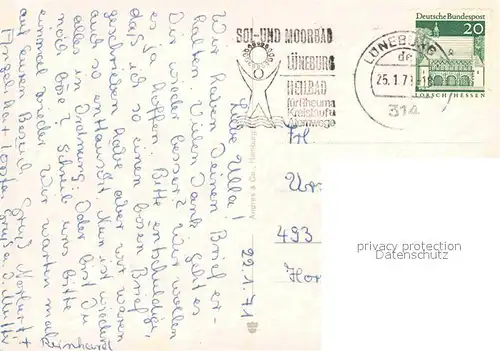 Liebe Ulla!
Wir haben Deinen Brief er-
halten. Vielen Dank. Geht es
wieder besser? Wir wollen
es ja hoffen. Bitte entschuldige,
daß ich so einen bösen Brief
geschrieben habe aber wir waren
auch so enttäuscht. Nun ist wieder
alles in Ordnung. Oder bist Du
noch böse? Schreib uns bitte
einmal wieder. Wir warten mal
auf euren Besuch. Gruß Norbert +
Reinhard
29.1.71
Andres & Co., Hamburg
SOL- UND MOORBAD
LÜNEBURG
HEILBAD
für Rheuma
Kreislauf u
Atemwege
LÜNEBURG
25.1.71
314
Deutsche Bundespost
20
LORSCH/HESSEN
Frl
493
Hor
privacy protection
Datenschutz